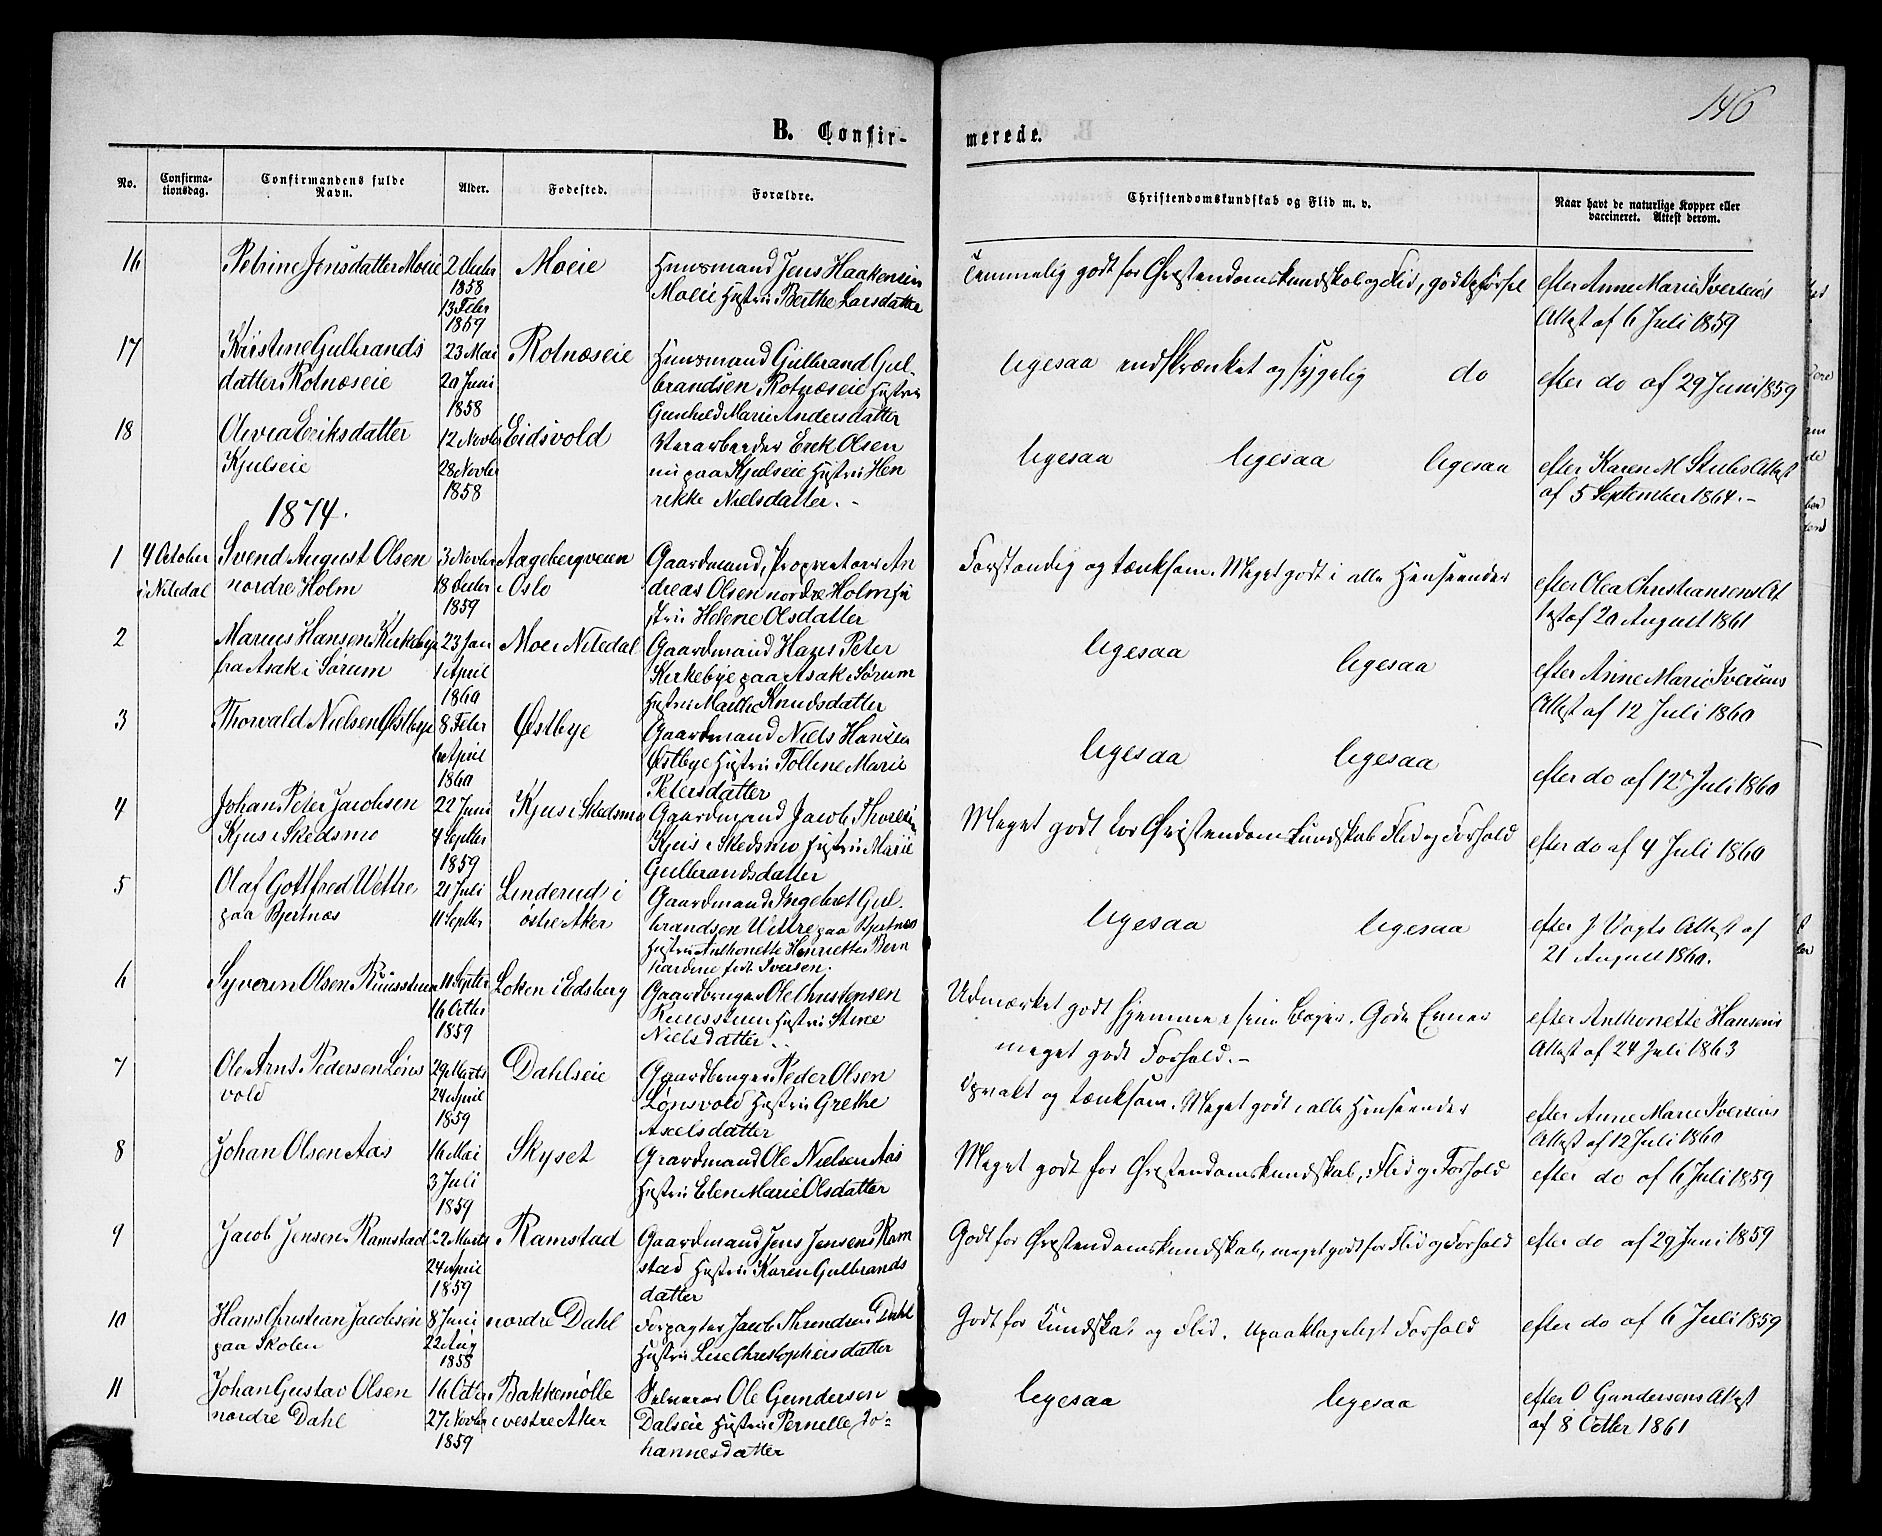 146
B. Confir-
merede.
No.
Confirma-
tionsdag.
Confirmandens fulde
Navn.
Alder.
Fødested.
Forældre.
Christendomskundskab og Flid m. v.
Naar havt de naturlige Kopper eller
vaccineret. Attest derom.
16 Petrine Jensdatter Moeie 2 Decbr Moeie Huusmand Jens Haakensen Temmelig godt for Christendomskundskab og Flid, god Opførsel efter Anne Marie Iversens
1858 Moeie Hustru Berthe Larsdatter Attest af 6 Juli 1859
13 Febr
1859
17 Kristine Gulbrands 23 Mai Rotnæseie Huusmand Gulbrand Gul- ligesaa indskrænket og sygelig do
datter Rotnæseie 20 Juni brandsen Rotnæseie Hustru efter do af 29 Juni 1859
1858 Gunhild Marie Andersdatter
18 Olivia Eriksdatter 12 Novbr Eidsvold Erik Olsen ligesaa ligesaa ligesaa efter Karen M Stubs Attest
Kjulseie 28 Novbr nu paa Kjulseie Hustru Hen af 5 September 1864.-
1858 rikke Nielsdatter.-
1874.
1 4 October Svend August Olsen 3 Novbr Aagebergveien Gaardmand, Proprietær An Forstandig og tænksom. Meget godt i alle Henseender efter Olea Christiansens At
i Nitedal nordre Holm 18 Decbr i Oslo dreas Olsen nordre Holm Hu test af 20 August 1861
1859 stru Helene Olsdatter
2 Marius Hansen Kirkebye 23 Jan Moe i Nitedal Gaardmand Hans Peter ligesaa ligesaa efter Anne Marie Iversens
fra Asak i Sørum 1 April Kirkebye paa Asak i Sørum Attest af 12 Juli 1860
1860 Hustru Marthe Knudsdatter
3 Thorvald Nielsen Østbye 8 Febr Østbye Gaardmand Niels Hansen ligesaa ligesaa
April Østbye Hustru Tolline Marie efter do af 12 Juli 1860
1860 Petersdatter
4 Johan Peter Jacobsen 22 Juni Kjus i Skedsmo Gaardmand Jacob Thoresen Meget godt for Christendomskundskab Flid og Forhold
Kjus i Skedsmo 4 Septbr Kjus i Skedsmo Hustru Marie efter do af 4 Juli 1860
1859 Gulbrandsdatter
5 Olaf Gottfred Wettre 21 Juli Linderud i Gaardmand Ingebret Gul- ligesaa ligesaa efter J Vogts Attest af
paa Bjertnæs 11 Septbr østre Aker brandsen Wettre paa Bjertnæs 21 August 1860.
Hustru Anthonette Henriette Bern
hardine født Iversen.
6 Syverin Olsen 11 Septbr Løken i Edsberg Gaardbruger Ole Christensen Udmærket godt hjemme i sine Bøger. Gode Evner efter Anthonette Hansens
16 Octbr Hustru Stine meget godt Forhold.- Attest af 24 Juli 1863
1859 Nielsdatter..
7 Ole Arnt Pedersen Løns 29 Marts Dahlseie Gaardbruger Peder Olsen Opvakt og tænksom. Meget godt i alle Henseender
vold 24 April Lønsvold Hustru Grethe efter Anne Marie Iversens
1859 Axelsdatter Attest af 12 Juli 1860
8 Johan Olsen Aas 16 Mai Skyset Gaardmand Ole Nielsen Aas Meget godt for Christendomskundskab, Flid og Forhold efter do af 6 Juli 1859
3 Juli Hustru Elen Marie Olsdatter
1859
9 Jacob Jensen Ramstad 22 Marts Ramstad Gaardmand Jens Jensen Ram Godt for Christendomskundskab, meget godt for Flid og Forhold efter do af 29 Juni 1859
24 April stad Hustru Karen Gulbrands
1859 datter
10 Hans Christian Jacobsen 8 Juni nordre Dahl Forpagter Jacob Dahl Godt for Kundskab og Flid. Upaaklageligt Forhold efter do af 6 Juli 1859
paa Skolen 22 Aug Hustru Lise Christophersdatter
1858
11 Johan Gustav Olsen 16 Octbr Bakkemølle Ole Gundersen ligesaa ligesaa efter O Gundersens Attest
nordre Dahl 27 Novbr i vestre Aker Dalseie Hustru Pernelle Jo- af 8 Octbr 1861
1859 hannesdatter